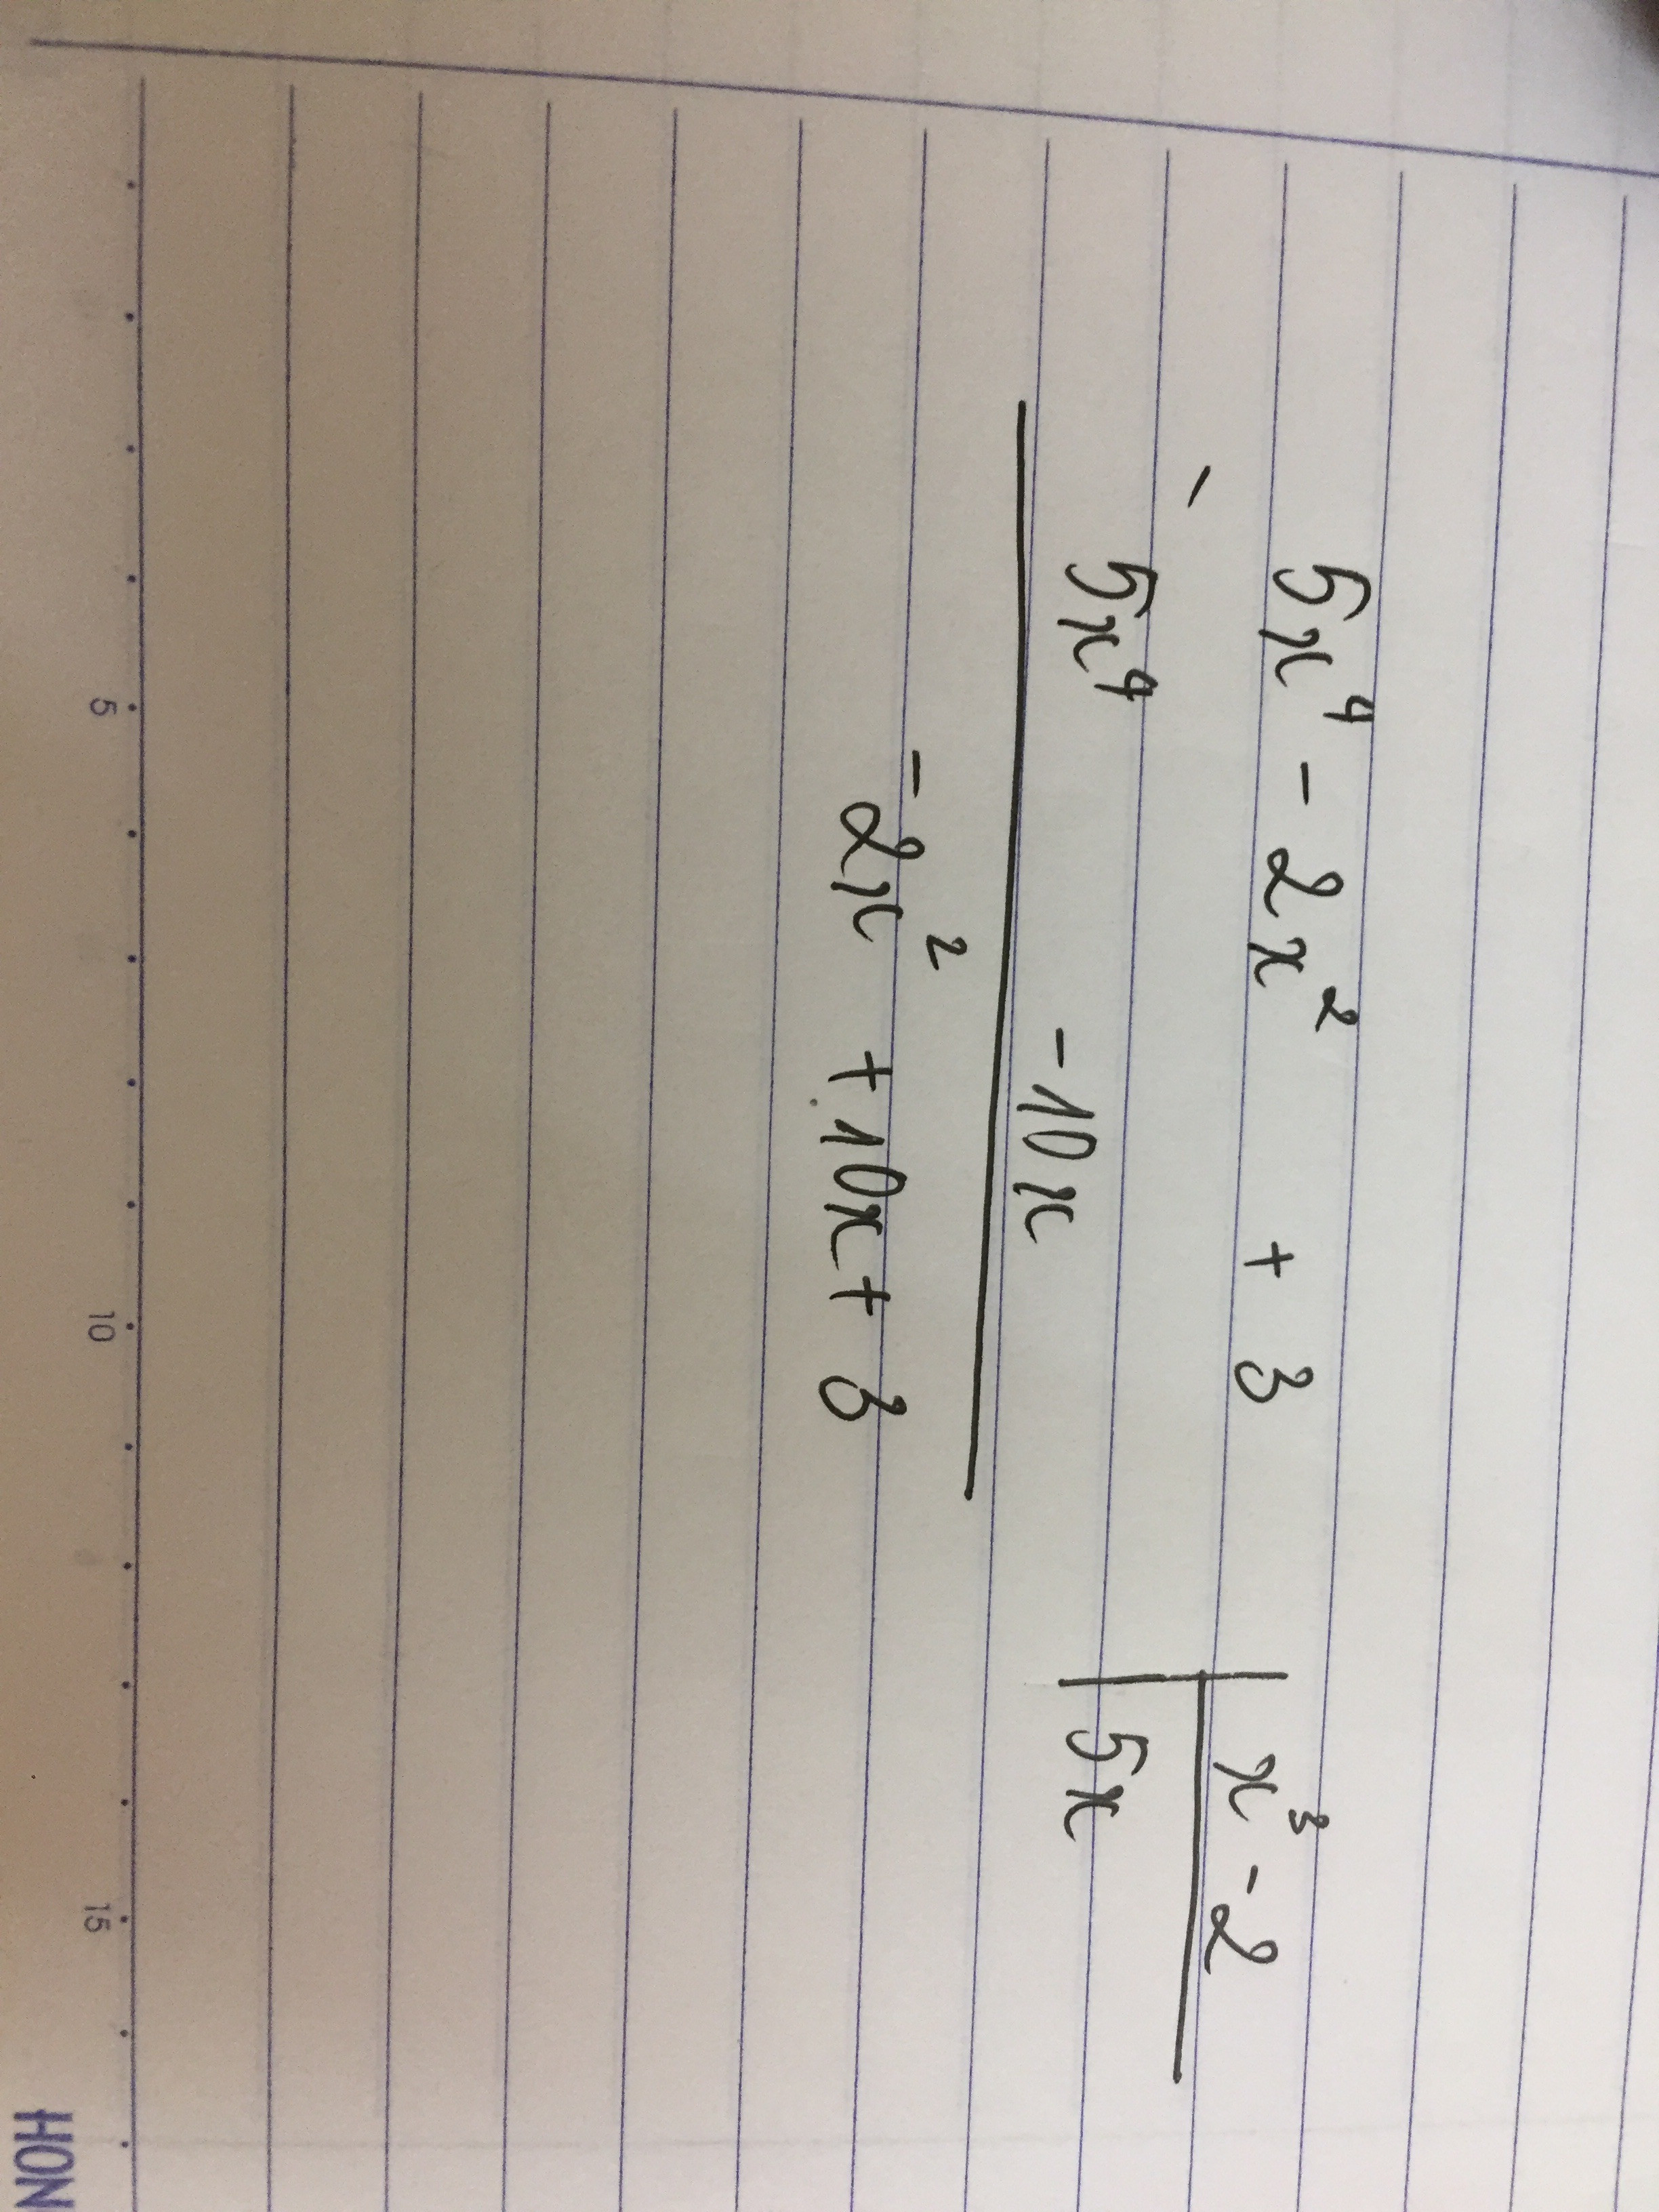 5x⁴ - 2x² + 3
x³ - 2
-
5x⁴ - 10x
5x
-2x² + 10x + 3
5 10 15
HON